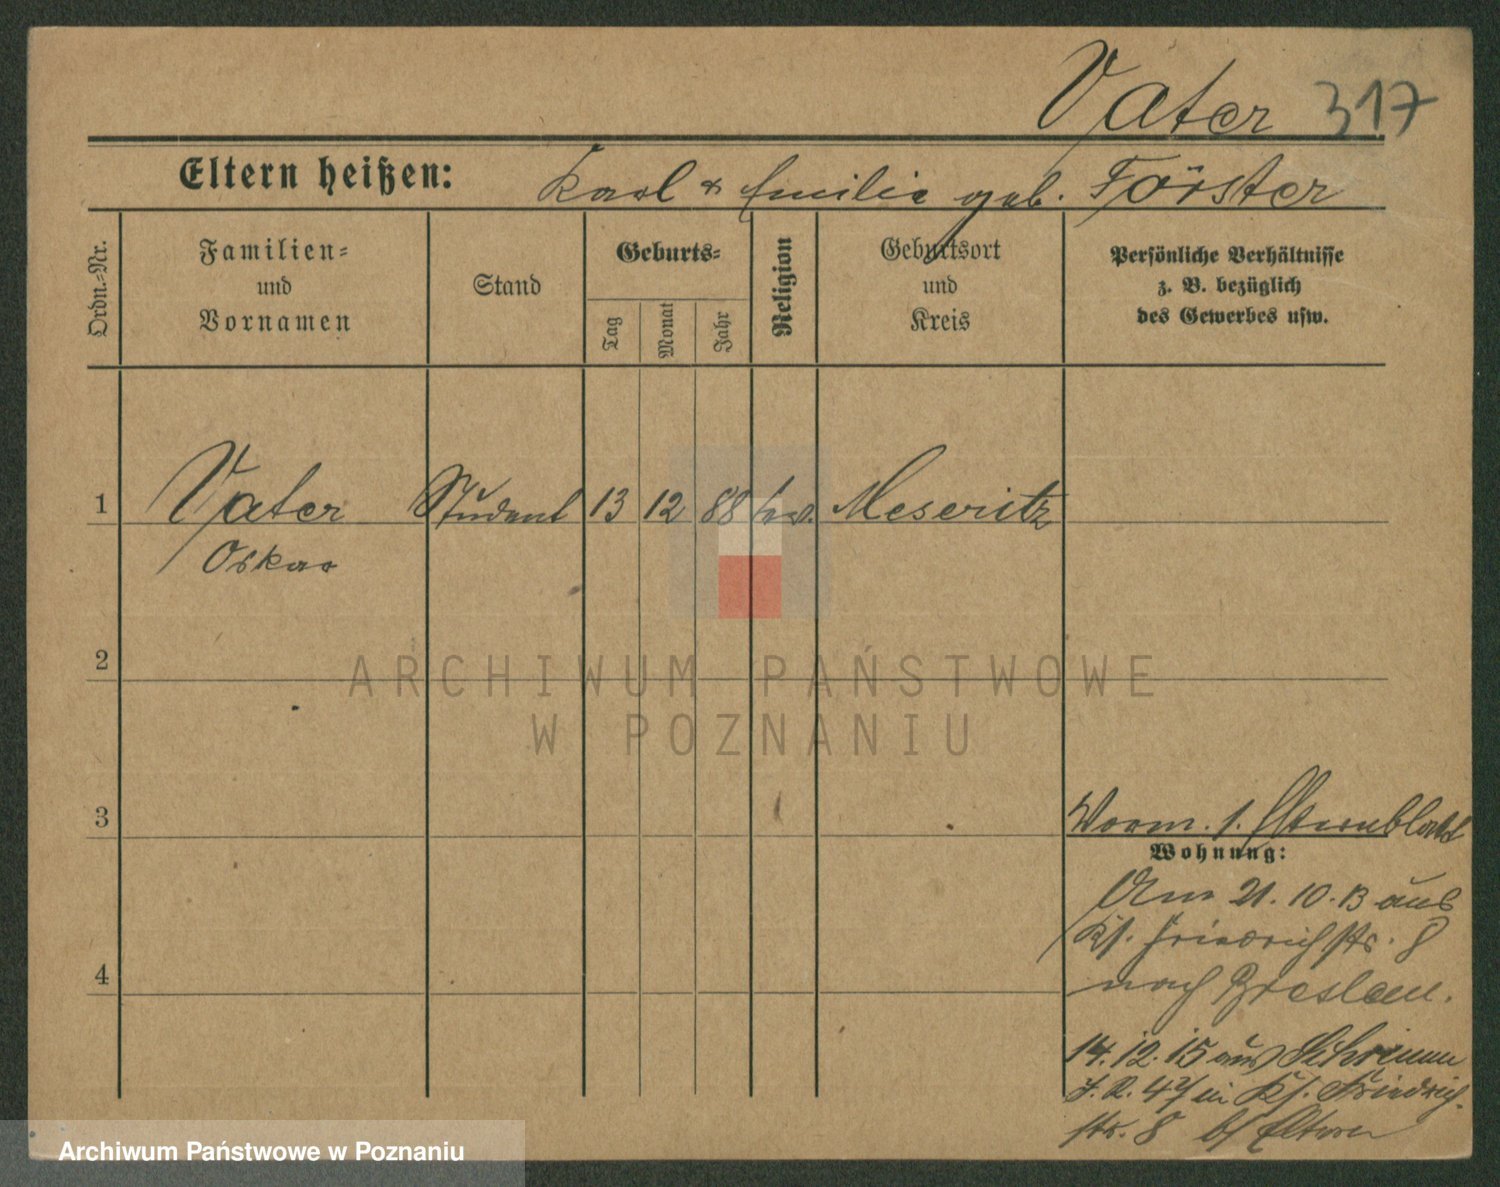 Vater 317
Eltern heißen: Karl & Emilie geb. Förster
Ordn.-Nr.
Familien-
und
Vornamen
Stand
Geburts-
Tag
Monat
Jahr
Religion
Geburtsort
und
Kreis
Persönliche Verhältnisse
z. B. bezüglich
des Gewerbes usw.
1 Vater Student 13 12 88 ev. Meseritz
Oskar
2
ARCHIWUM PAŃSTWOWE
W POZNANIU
3
Vorm. s. Elternblatt
Wohnung:
Am 21.10.13 aus
Ks. Friedrichstr. 8
nach Breslau.
4
14.12.15 aus Schrimm
J.R. 47 in Ks. Friedrich-
str. 8 b/ Eltern
Archiwum Państwowe w Poznaniu